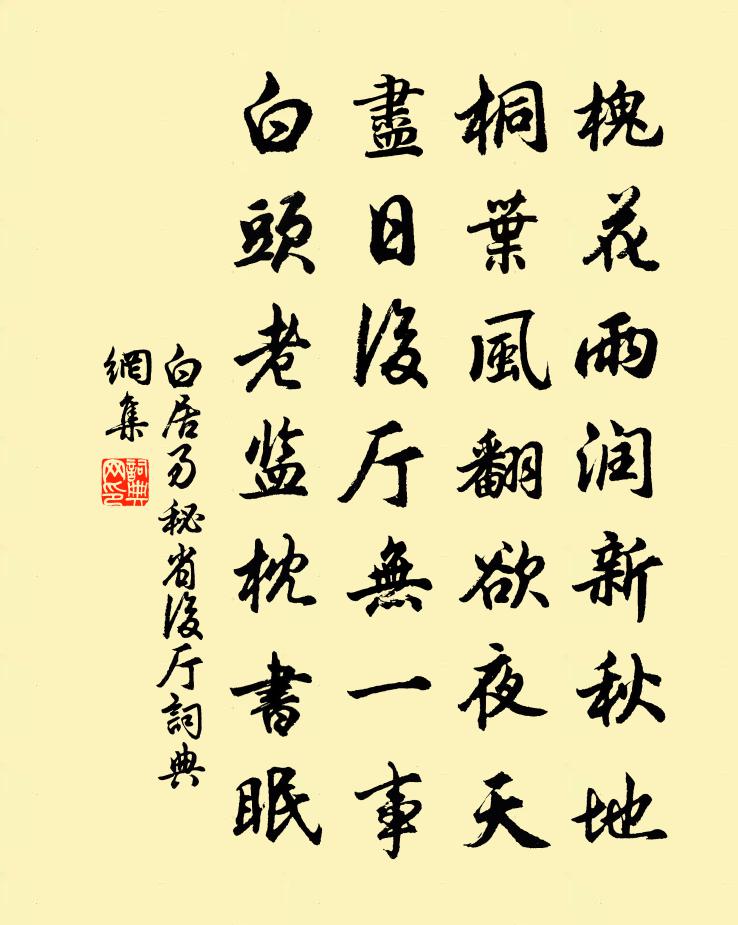 槐花雨润新秋地
桐葉風翻欲夜天
盡日後厅無一事
白頭老监枕書眠
白居易秘省後厅詞典
網集
詞典
网印